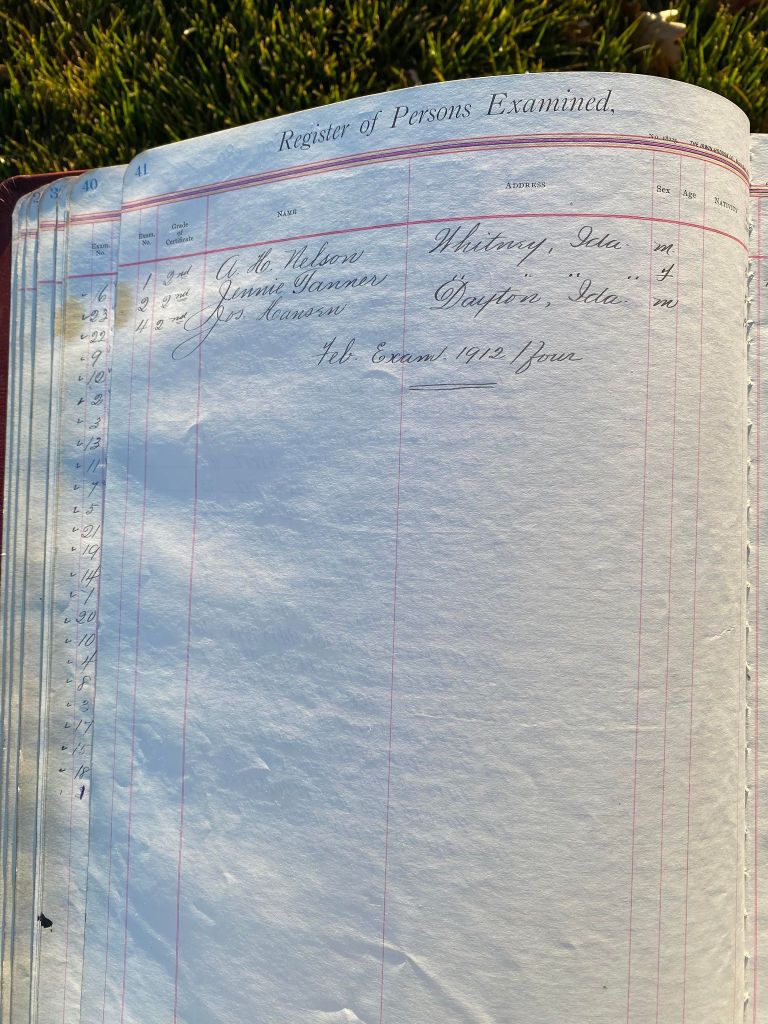 Register of Persons Examined,
41
40
Exam. No. Grade of Certificate NAME ADDRESS Sex Age NATIVITY
Exam. No.
1 2nd A H. Nelson Whitney, Ida. m
2 2nd Jennie Tanner " " " f
4 2nd Jos Hansen Dayton, Ida. m
Feb. Exam. 1912 / four
6
23
22
9
10
2
3
13
11
7
5
21
19
14
1
20
10
4
8
3
17
15
18
1